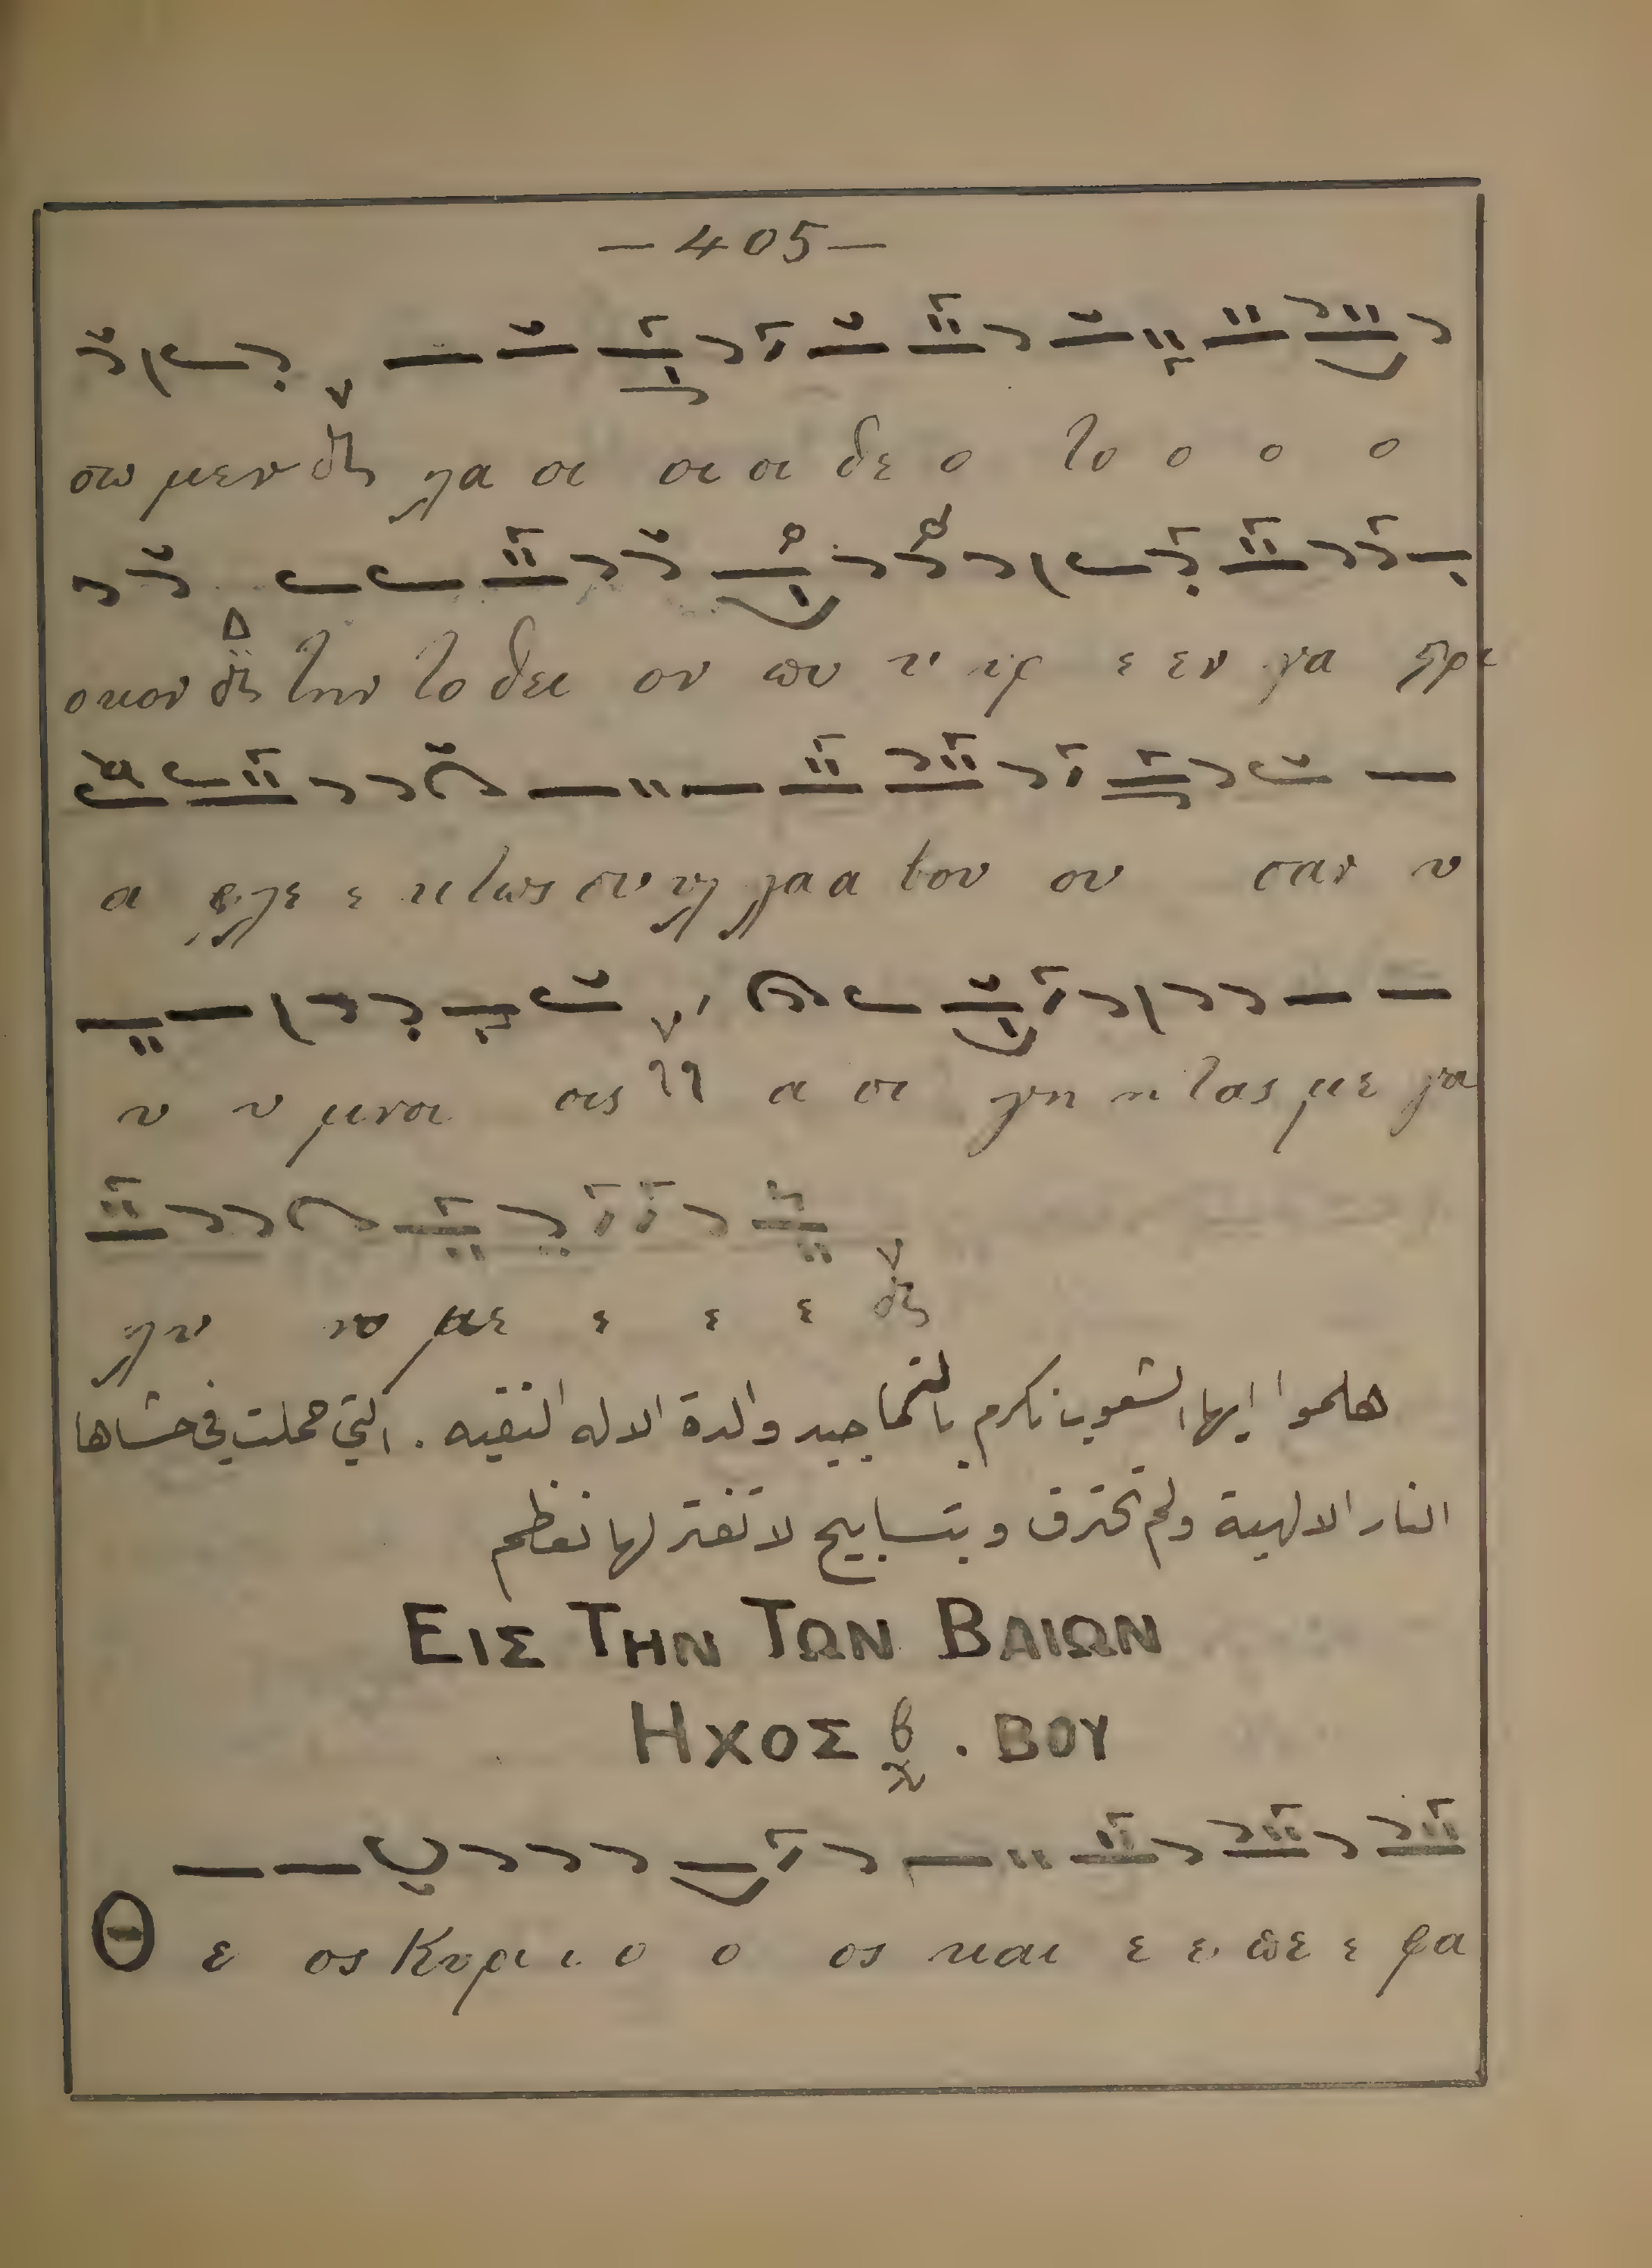 —405—
σω μεν λα οι οι οι δε ο το ο ο ο
οκον την το θει ον πυ υ υρ ε εν γα στρι
α φλε ε κτως συ υλ λαα βου ου σαν υ
υ υ μνοι οις α σι γη η τας με γα
λυ νο με ε ε ε
هلموا ايها الشعوب نكرم بالتماجيد والدة الاله النقيه . التي حملت في حشاها
النار الالهية ولم تحترق وبتسابيح لا تفتر لها نعظم
ΕΙΣ ΤΗΝ ΤΩΝ ΒΑΙΩΝ
ΗΧΟΣ β . ΒΟΥ
Θ ε ος Κυρι ι ο ο ος και ε ε πε ε φα